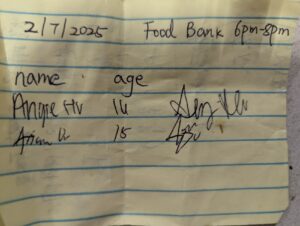 2/7/2025 Food Bank 6pm-8pm
name age
Angie Hu 14
15